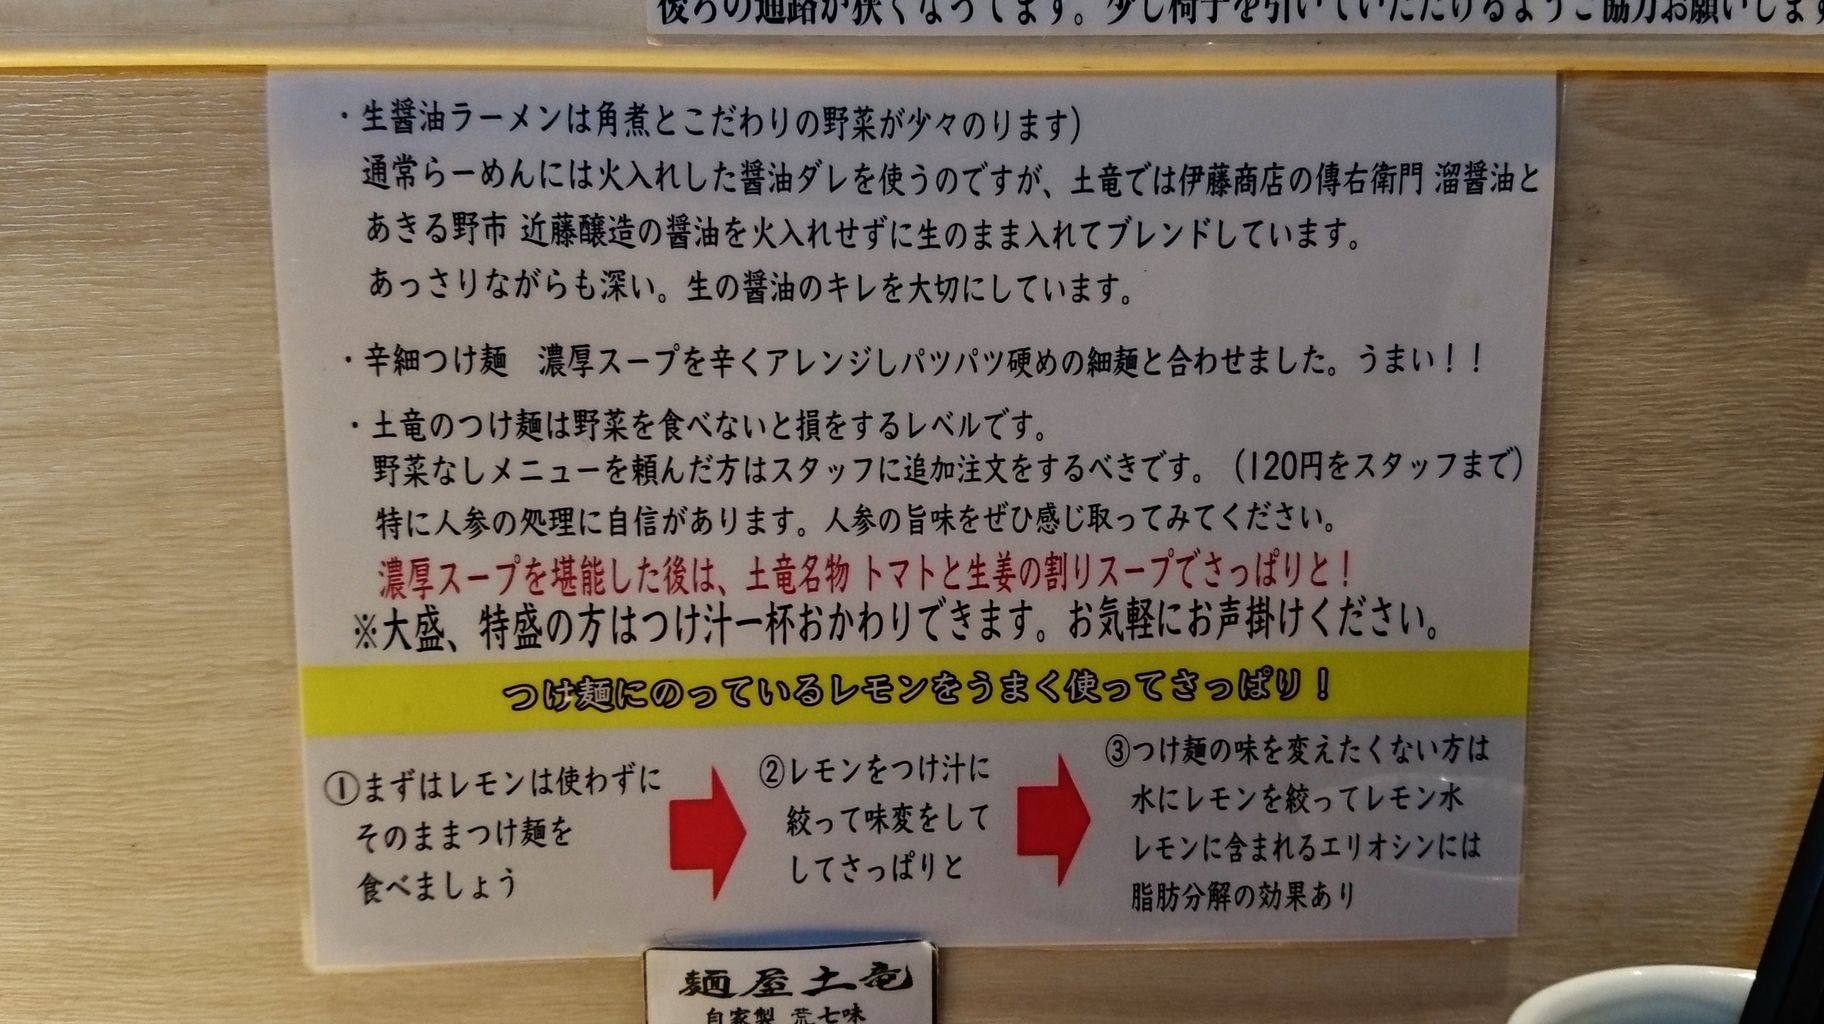 後ろの通路が狭くなってます。少し椅子を引いていただけるようご協力お願いします
・生醤油ラーメンは角煮とこだわりの野菜が少々のります)
通常らーめんには火入れした醤油ダレを使うのですが、土竜では伊藤商店の傳右衛門 溜醤油と
あきる野市 近藤醸造の醤油を火入れせずに生のまま入れてブレンドしています。
あっさりながらも深い。生の醤油のキレを大切にしています。
・辛細つけ麺　濃厚スープを辛くアレンジしパツパツ硬めの細麺と合わせました。うまい！！
・土竜のつけ麺は野菜を食べないと損をするレベルです。
野菜なしメニューを頼んだ方はスタッフに追加注文をするべきです。（120円をスタッフまで）
特に人参の処理に自信があります。人参の旨味をぜひ感じ取ってみてください。
濃厚スープを堪能した後は、土竜名物 トマトと生姜の割りスープでさっぱりと！
※大盛、特盛の方はつけ汁一杯おかわりできます。お気軽にお声掛けください。
つけ麺にのっているレモンをうまく使ってさっぱり！
①まずはレモンは使わずに
そのままつけ麺を
食べましょう
②レモンをつけ汁に
絞って味変をして
してさっぱりと
③つけ麺の味を変えたくない方は
水にレモンを絞ってレモン水
レモンに含まれるエリオシンには
脂肪分解の効果あり
麺屋土竜
自家製 荒七味